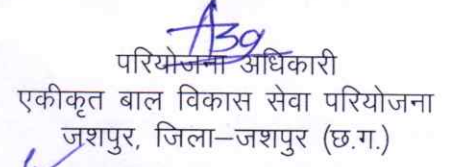 परियोजना अधिकारी
एकीकृत बाल विकास सेवा परियोजना
जशपुर, जिला–जशपुर (छ.ग.)